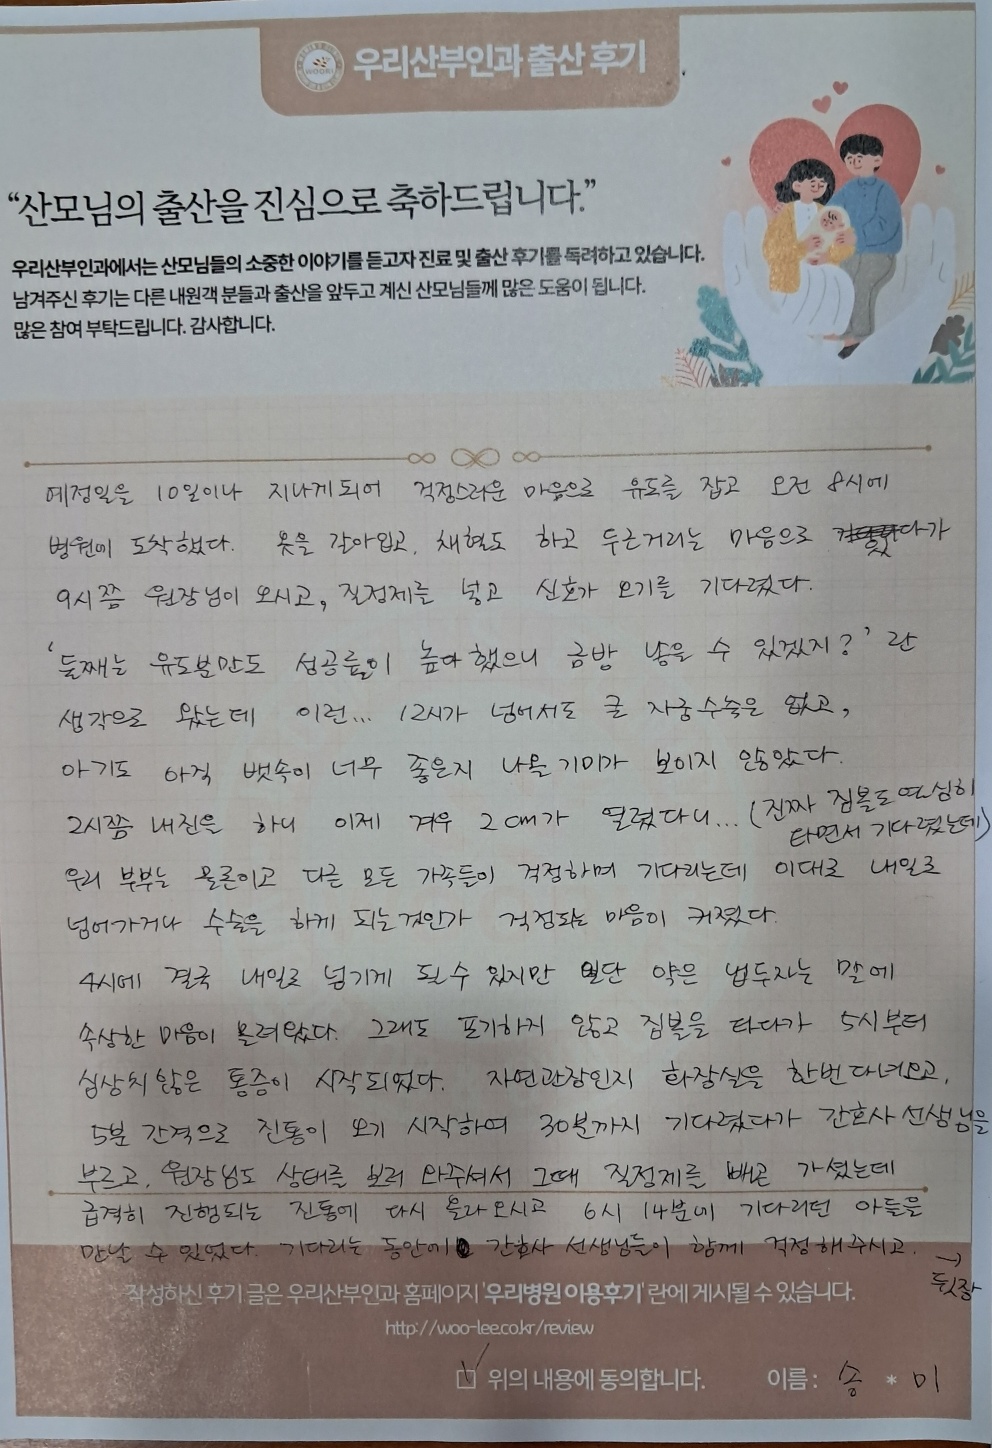 우리산부인과 출산 후기
“산모님의 출산을 진심으로 축하드립니다.”
우리산부인과에서는 산모님들의 소중한 이야기를 듣고자 진료 및 출산 후기를 독려하고 있습니다.
남겨주신 후기는 다른 내원객 분들과 출산을 앞두고 계신 산모님들께 많은 도움이 됩니다.
많은 참여 부탁드립니다. 감사합니다.
예정일을 10일이나 지나게 되어 걱정스러운 마음으로 유도를 잡고 오전 8시에
병원에 도착했다. 옷을 갈아입고, 채혈도 하고 두근거리는 마음으로 있다가
9시쯤 원장님이 오시고, 질정제를 넣고 신호가 오기를 기다렸다.
‘둘째는 유도분만도 성공률이 높다 했으니 금방 낳을 수 있겠지?’ 란
생각으로 왔는데 이런... 12시가 넘어서도 큰 자궁수축은 없고,
아기도 아직 뱃속이 너무 좋은지 나올 기미가 보이지 않았다.
2시쯤 내진을 하니 이제 겨우 2cm가 열렸다니... (진짜 짐볼도 열심히
타면서 기다렸는데)
우리 부부는 물론이고 다른 모든 가족들이 걱정하며 기다리는데 이대로 내일로
넘어가거나 수술을 하게 되는것인가 걱정되는 마음이 커졌다.
4시에 결국 내일로 넘기게 될 수 있지만 일단 약은 넣어두자는 말에
속상한 마음이 몰려왔다. 그래도 포기하지 않고 짐볼을 타다가 5시부터
심상치 않은 통증이 시작되었다. 자연관장인지 화장실을 한번 다녀오고,
5분 간격으로 진통이 오기 시작하여 30분까지 기다렸다가 간호사 선생님을
부르고, 원장님도 상태를 보러 와주셔서 그때 질정제를 빼고 가셨는데
급격히 진행되는 진통에 다시 올라오시고 6시 14분에 기다리던 아들을
만날 수 있었다. 기다리는 동안에 간호사 선생님들이 함께 걱정해주시고.
→
뒷장
작성하신 후기 글은 우리산부인과 홈페이지 '우리병원 이용후기' 란에 게시될 수 있습니다.
http://woo-lee.co.kr/review
위의 내용에 동의합니다. 이름 : 송 * 미